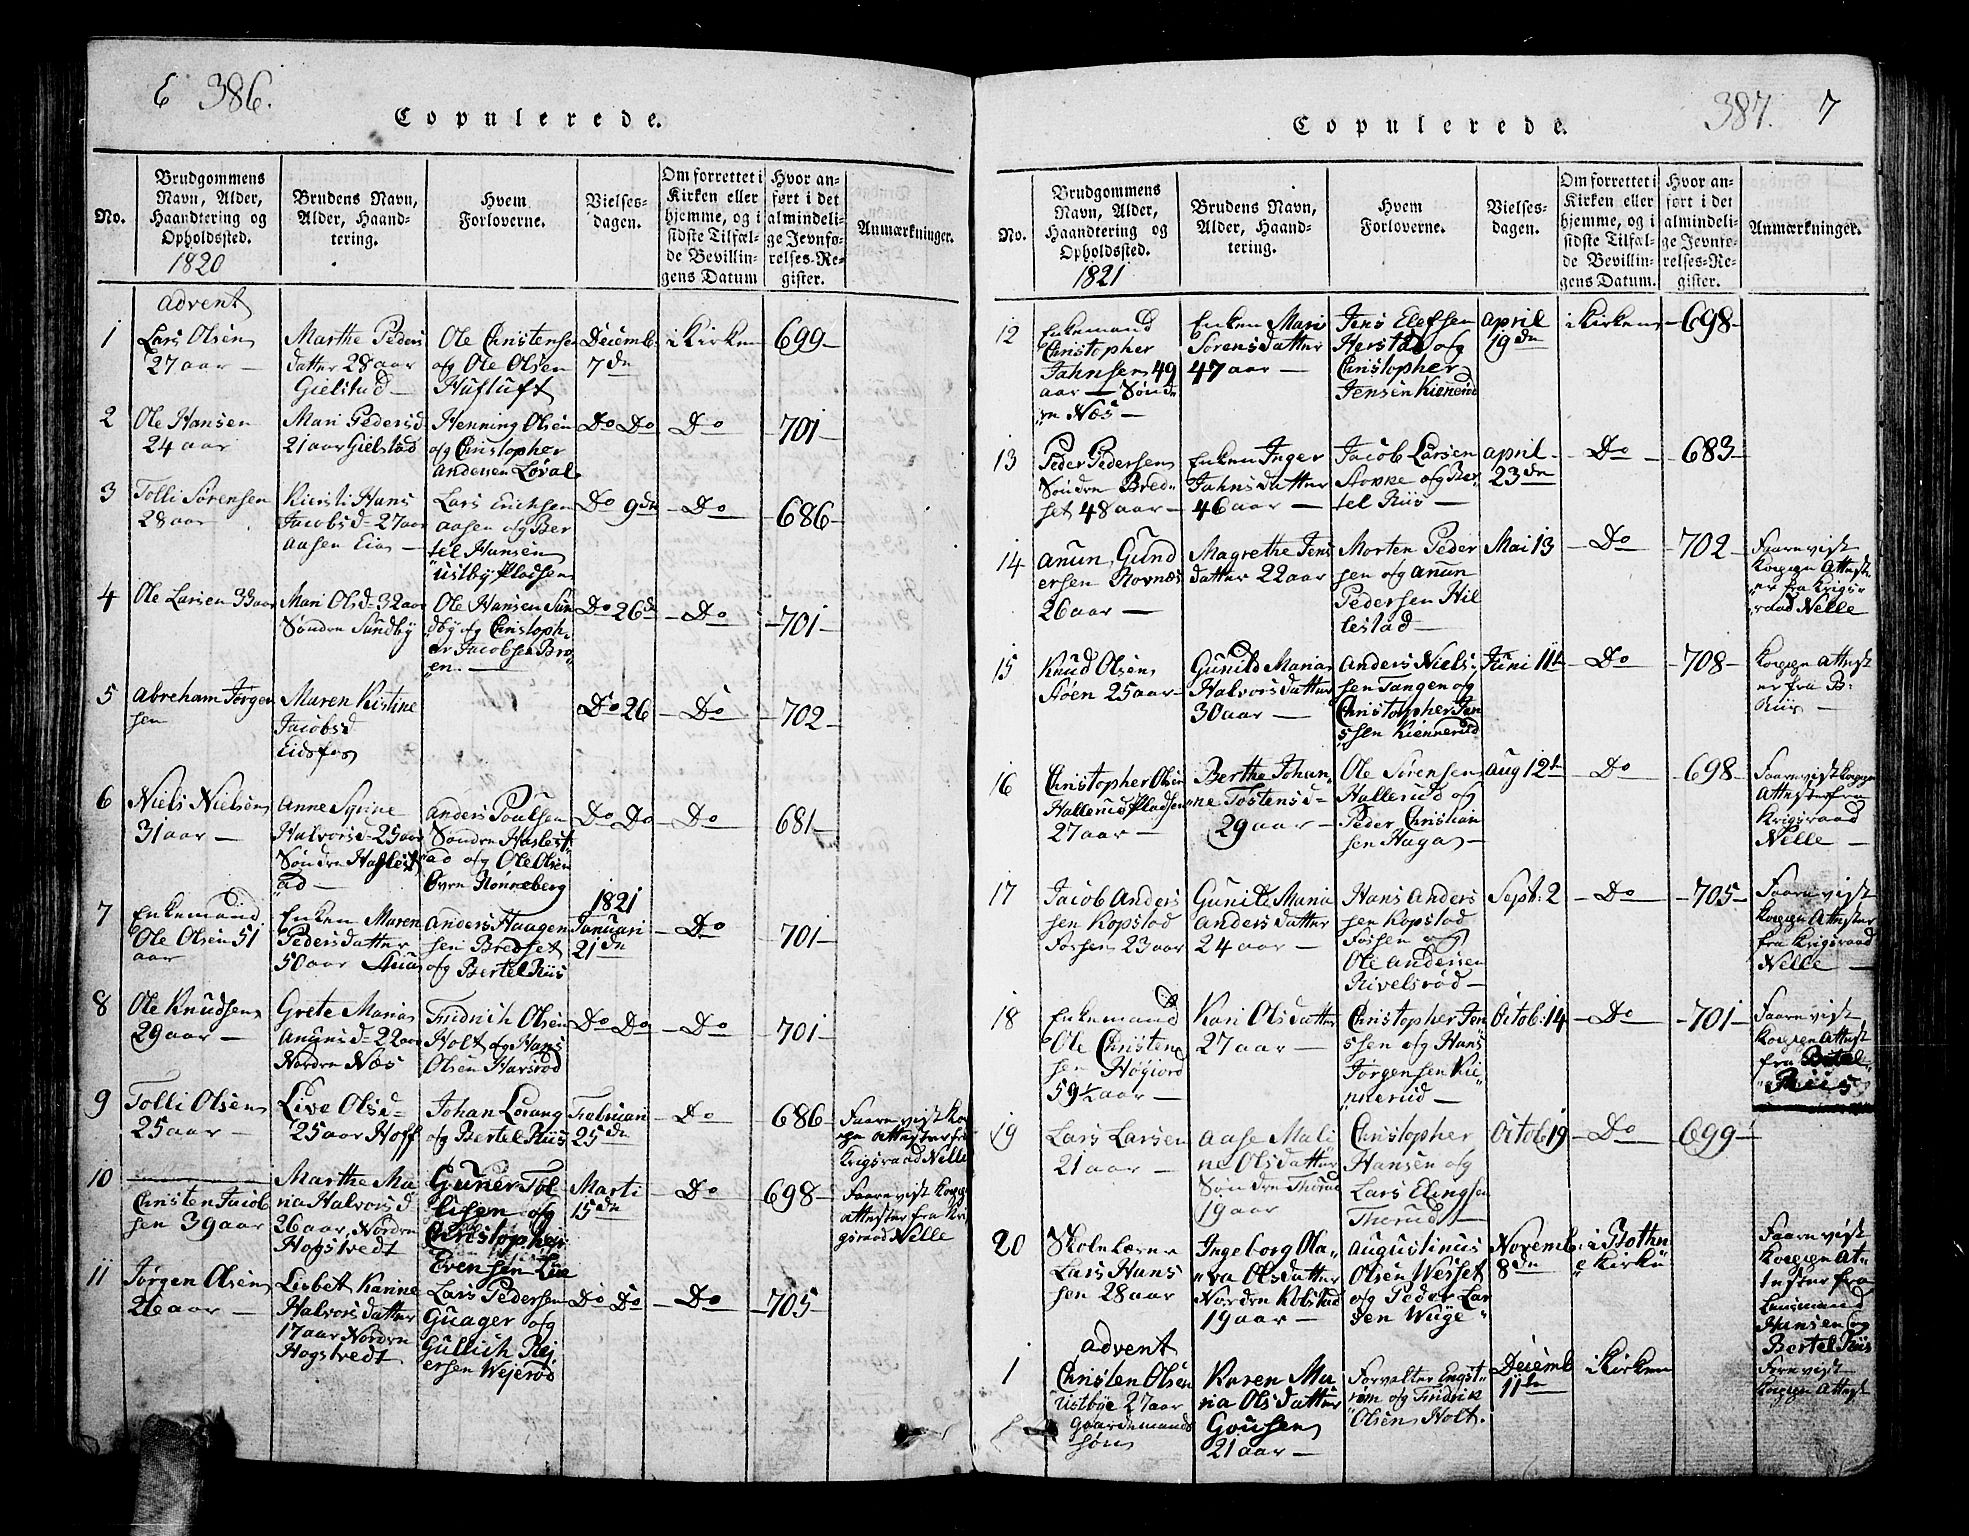 E 386.
Copulerede.
No.
Brudgommens
Navn, Alder,
Haandtering og
Opholdssted.
1820
Brudens Navn,
Alder, Haand-
tering.
Hvem
Forloverne.
Vielses-
dagen.
Om forrettet i
Kirken eller
hjemme, og i
sidste Tilfæl-
de Bevillin-
gens Datum
Hvor an-
ført i det
almindeli-
ge Jevnfø-
relses-Re-
gister.
Anmærkninger.
advent
1
Lars Olsen
27 aar —
Marthe Peders
datter 28 aar
Gielstad —
Ole Christensen
og Ole Olsen
Hufluft
Decemb.
7de
i Kirken
699
2
Ole Hansen
24 aar
Mari Pedersd
21 aar Gielstad
Henning Olsen
og Christopher
Andersen Løval
Do Do
Do
701
3
Tolli Sørensen
28 aar
Kiersti Hans
Jacobsd= 27 aar
Aasen Eie —
Lars Erichsen
Aasen og Ber
tel Hansen
Ustby Pladsen
Do 9de
Do
686
4
Ole Larsen 33 aar
Mari Olsd= 32 aar
Søndre Sundby
Ole Hansen Sun
dby og Christoph-
er Jacobsen Bro
en. —
Do 26de
Do
701
5
Abreham Jørgen
sen
Maren Kistine
Jacobsd
Eidsfos
Do 26
Do
702
6
Niels Nielsen
31 aar —
Anne Syrine
Halvorsd= 25 aar
Søndre Haslest
ad —
Anders Poulsen
Søndre Haslest
ad og Ole Olsen
Øvre Rønneberg
Do Do
Do
681
7
Enkemand
Ole Olsen 51
aar
Enken Maren
Pedersdatter
50 aar
Anders Haagen
sen Bredset
og Bertel Riis
1821
Januari
21de
Do
701
8
Ole Knudsen
29 aar —
Grete Maria
Anunsd= 22 aar
Nordre Næs
Fridrich Olsen
Holt og Hans
Olsen Harsrød
Do Do
Do
701
9
Tolli Olsen
25 aar —
Live Olsd=
25 aar Hoff
Johan Lorang
og Bertel Riis
Februari
25de
Do
686
Foreviist Ko
ppe Attester fra
Krigsraad Nelle
10
Christen Jacob
sen 39 aar
Marthe Ma
ria Halvorsd
26 aar, Nordre
Hogstvedt
Guner Tol
lisen og
Christopher
Evensen Lie
Marti
15de
Do
698
Foreviist Koppe
Attester fra Kri
gsraad Nelle
11
Jørgen Olsen
26 aar —
Lisbet Karine
Halvorsdatter
17 aar Nordre
Hogstvedt
Lars Pedersen
Guager og
Gullich Rej
ersen Wejerød
Do Do
Do
705
387. 7
Copulerede.
No.
Brudgommens
Navn, Alder,
Haandtering og
Opholdssted.
1821
Brudens Navn,
Alder, Haand-
tering.
Hvem
Forloverne.
Vielses-
dagen.
Om forrettet i
Kirken eller
hjemme, og i
sidste Tilfæl-
de Bevillin-
gens Datum.
Hvor an-
ført i det
almindeli-
ge Jevnfø-
relses-Re-
gister.
Anmærkninger.
12
Enkemand
Christopher
Jahnsen 49
aar — Sønd
re Næs —
Enken Mari
Sørensdatter
47 aar —
Jens Elefsen
Herstad og
Christopher
Jensen Kienerud
April
19de
i Kirken
698
13
Peder Pedersen
Søndre Bred
set 48 aar —
Enken Inger
Jahnsdatter
46 aar —
Jacob Larsen
Stovke og Ber
tel Riis —
April
23de
Do
683
14
Anun Gund
ersen Rovnæs
26 aar —
Magrethe Jens
datter 22 aar
Morten Peder
sen og Anun
Pedersen Hil
lestad —
Mai 13
Do
702
Foreviist
Koppe Atteste
er fra Krigs
raad Nelle
15
Knud Olsen
Støen 25 aar —
Gunild Maria
Halvorsdatter
30 aar —
Anders Niels
sen Tangen og
Christopher Jen
sen Kiennerud
Juni 11te
Do
708
Koppe Attest
er fra B:
Riis —
16
Christopher Olsen
Hallerud Pladsen
27 aar —
Berthe Johan
ne Tostensd=
29 aar —
Ole Sørensen
Hallerud og
Peder Christian
sen Haga —
Aug 12te
Do
698
Foreviist Koppe
Attester fra
Krigsraad
Nelle —
17
Jacob Anders
sen Kopstad
Fossen 23 aar
Gunild Maria
Andersdatter
24 aar —
Hans Anders
sen Kopstad
Fossen og
Ole Andersen
Rivelsrød —
Sept: 2
Do
705
Foreviist
Koppe Attester
fra Krigsraad
Nelle —
18
Enkemand
Ole Christen
sen Høgiord
59½ aar —
Kari Olsdatter
27 aar —
Christopher Jen
sen og Hans
Jørgensen Kie
nnerud —
Octob: 14
Do
701
Foreviist
Koppe Attest
fra Bertel
Riis
19
Lars Larsen
21 aar —
Aase Mali
ne Olsdatter
Søndre Thorud
19 aar
Christopher
Hansen og
Lars Elingsen
Thorud —
Octob 19
Do
699
20
Skole Lærer
Lars Hans
sen 28 aar
Ingeborg Ola
va Olsdatter
Nordre Kobstad
19 aar —
Augustinus
Olsen Wesset
og Peder Lar
sen Wiige
Novemb
8de
i Bothn
e Kirke
Foreviist
Koppe At
tester fra
Lensmand
Hansen og
Bertel Riis
advent
1
Christen Olsen
Ustbye 27 aar
Gaardemands
søn
Karen Ma
ria Olsdatter
Gousen
21 aar —
Forvalter Engst
røm og Fridrik
Olsen Holt.
Decemb
11te
i Kirken
Foreviist
Koppe Attest